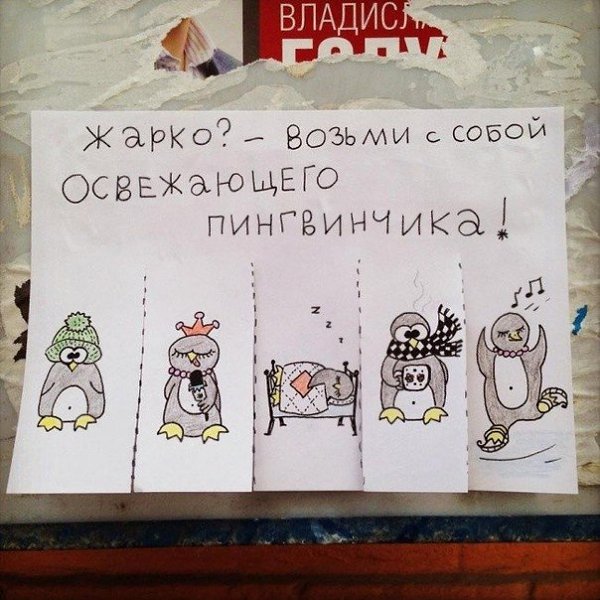 ВЛАДИСЛ
жарко? – возьми с собой
освежающего
пингвинчика!
z
z
z